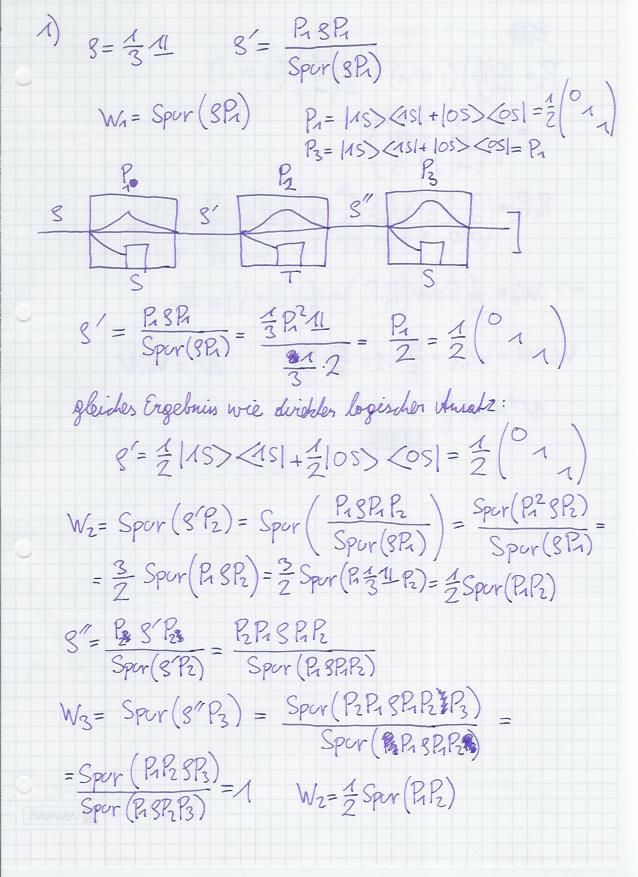 1) ρ = 1/3 𝟙   ρ' = P₁ρP₁ / Spur(ρP₁)
W₁ = Spur(ρP₁)   P₁ = |1S><1S| + |0S><0S| = 1/2 (0 1 1)
P₃ = |1S><1S| + |0S><0S| = P₁
P₁ P₂ P₃
ρ ρ' ρ''
S T S
ρ' = P₁ρP₁ / Spur(ρP₁) = 1/3 P₁² 𝟙 / 1/3 · 2 = P₁/2 = 1/2 (0 1 1)
gleiches Ergebnis wie direkter logischer Ansatz:
ρ' = 1/2 |1S><1S| + 1/2 |0S><0S| = 1/2 (0 1 1)
W₂ = Spur(ρ'P₂) = Spur(P₁ρP₁P₂ / Spur(ρP₁)) = Spur(P₁²ρP₂) / Spur(ρP₁) =
= 3/2 Spur(P₁ρP₂) = 3/2 Spur(P₁ 1/3 𝟙 P₂) = 1/2 Spur(P₁P₂)
ρ'' = P₂ρ'P₂ / Spur(ρ'P₂) = P₂P₁ρP₁P₂ / Spur(P₁ρP₁P₂)
W₃ = Spur(ρ''P₃) = Spur(P₂P₁ρP₁P₂P₃) / Spur(P₁ρP₁P₂) =
= Spur(P₁P₂ρP₃) / Spur(P₁ρP₂P₃) = 1   W₂ = 1/2 Spur(P₁P₂)
BRUNNEN